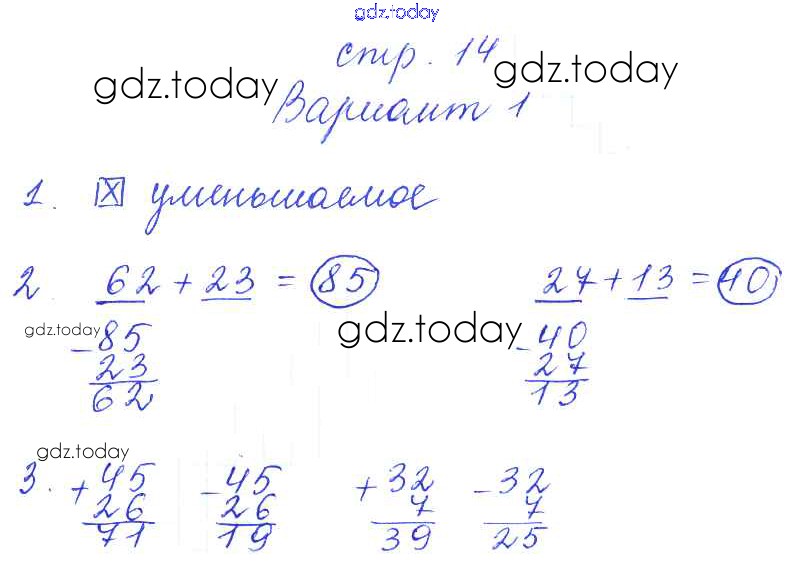 gdz.today
стр. 14
gdz.today gdz.today
Вариант 1
1. ☒ уменьшаемое
2. 62 + 23 = 85 27 + 13 = 40
gdz.today - 85 gdz.today - 40
23 27
62 13
gdz.today
3. + 45 - 45 + 32 - 32
26 26 7 7
71 19 39 25